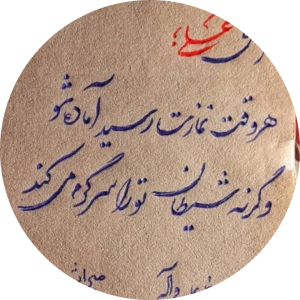 علی؛
هر وقت نمازت رسید آماده شو
وگرنه شیطان تو را سرگرم می کند